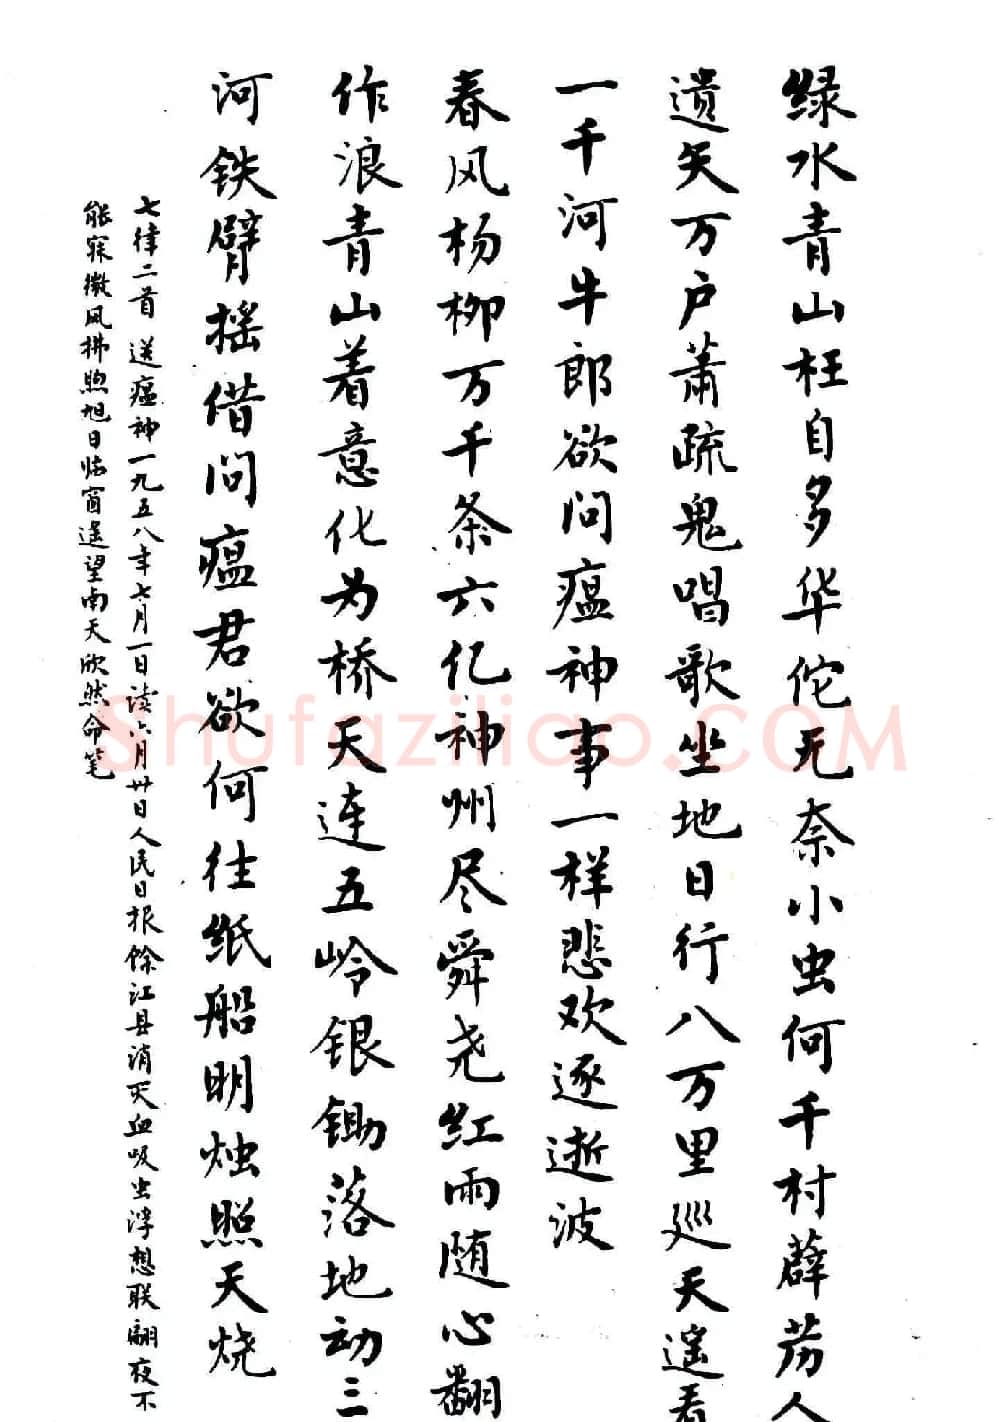 绿水青山枉自多华佗无奈小虫何千村薜荔人
遗矢万户萧疏鬼唱歌坐地日行八万里巡天遥看
一千河牛郎欲问瘟神事一样悲欢逐逝波
春风杨柳万千条六亿神州尽舜尧红雨随心翻
作浪青山着意化为桥天连五岭银锄落地动三
河铁臂摇借问瘟君欲何往纸船明烛照天烧
七律二首 送瘟神一九五八年七月一日读六月卅日人民日报馀江县消灭血吸虫浮想联翩夜不
能寐微风拂煦旭日临窗遥望南天欣然命笔
Shufaziliao.COM